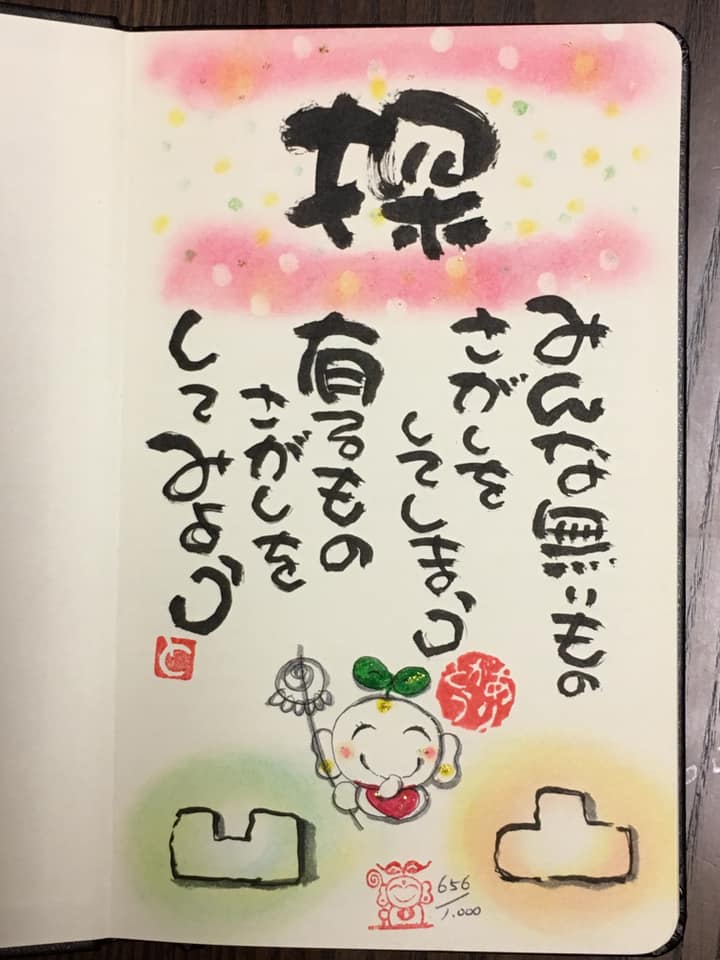 探
みんな無いもの
さがしを
してしまう
有るもの
さがしを
してみよう
ありがとう
656/1.000